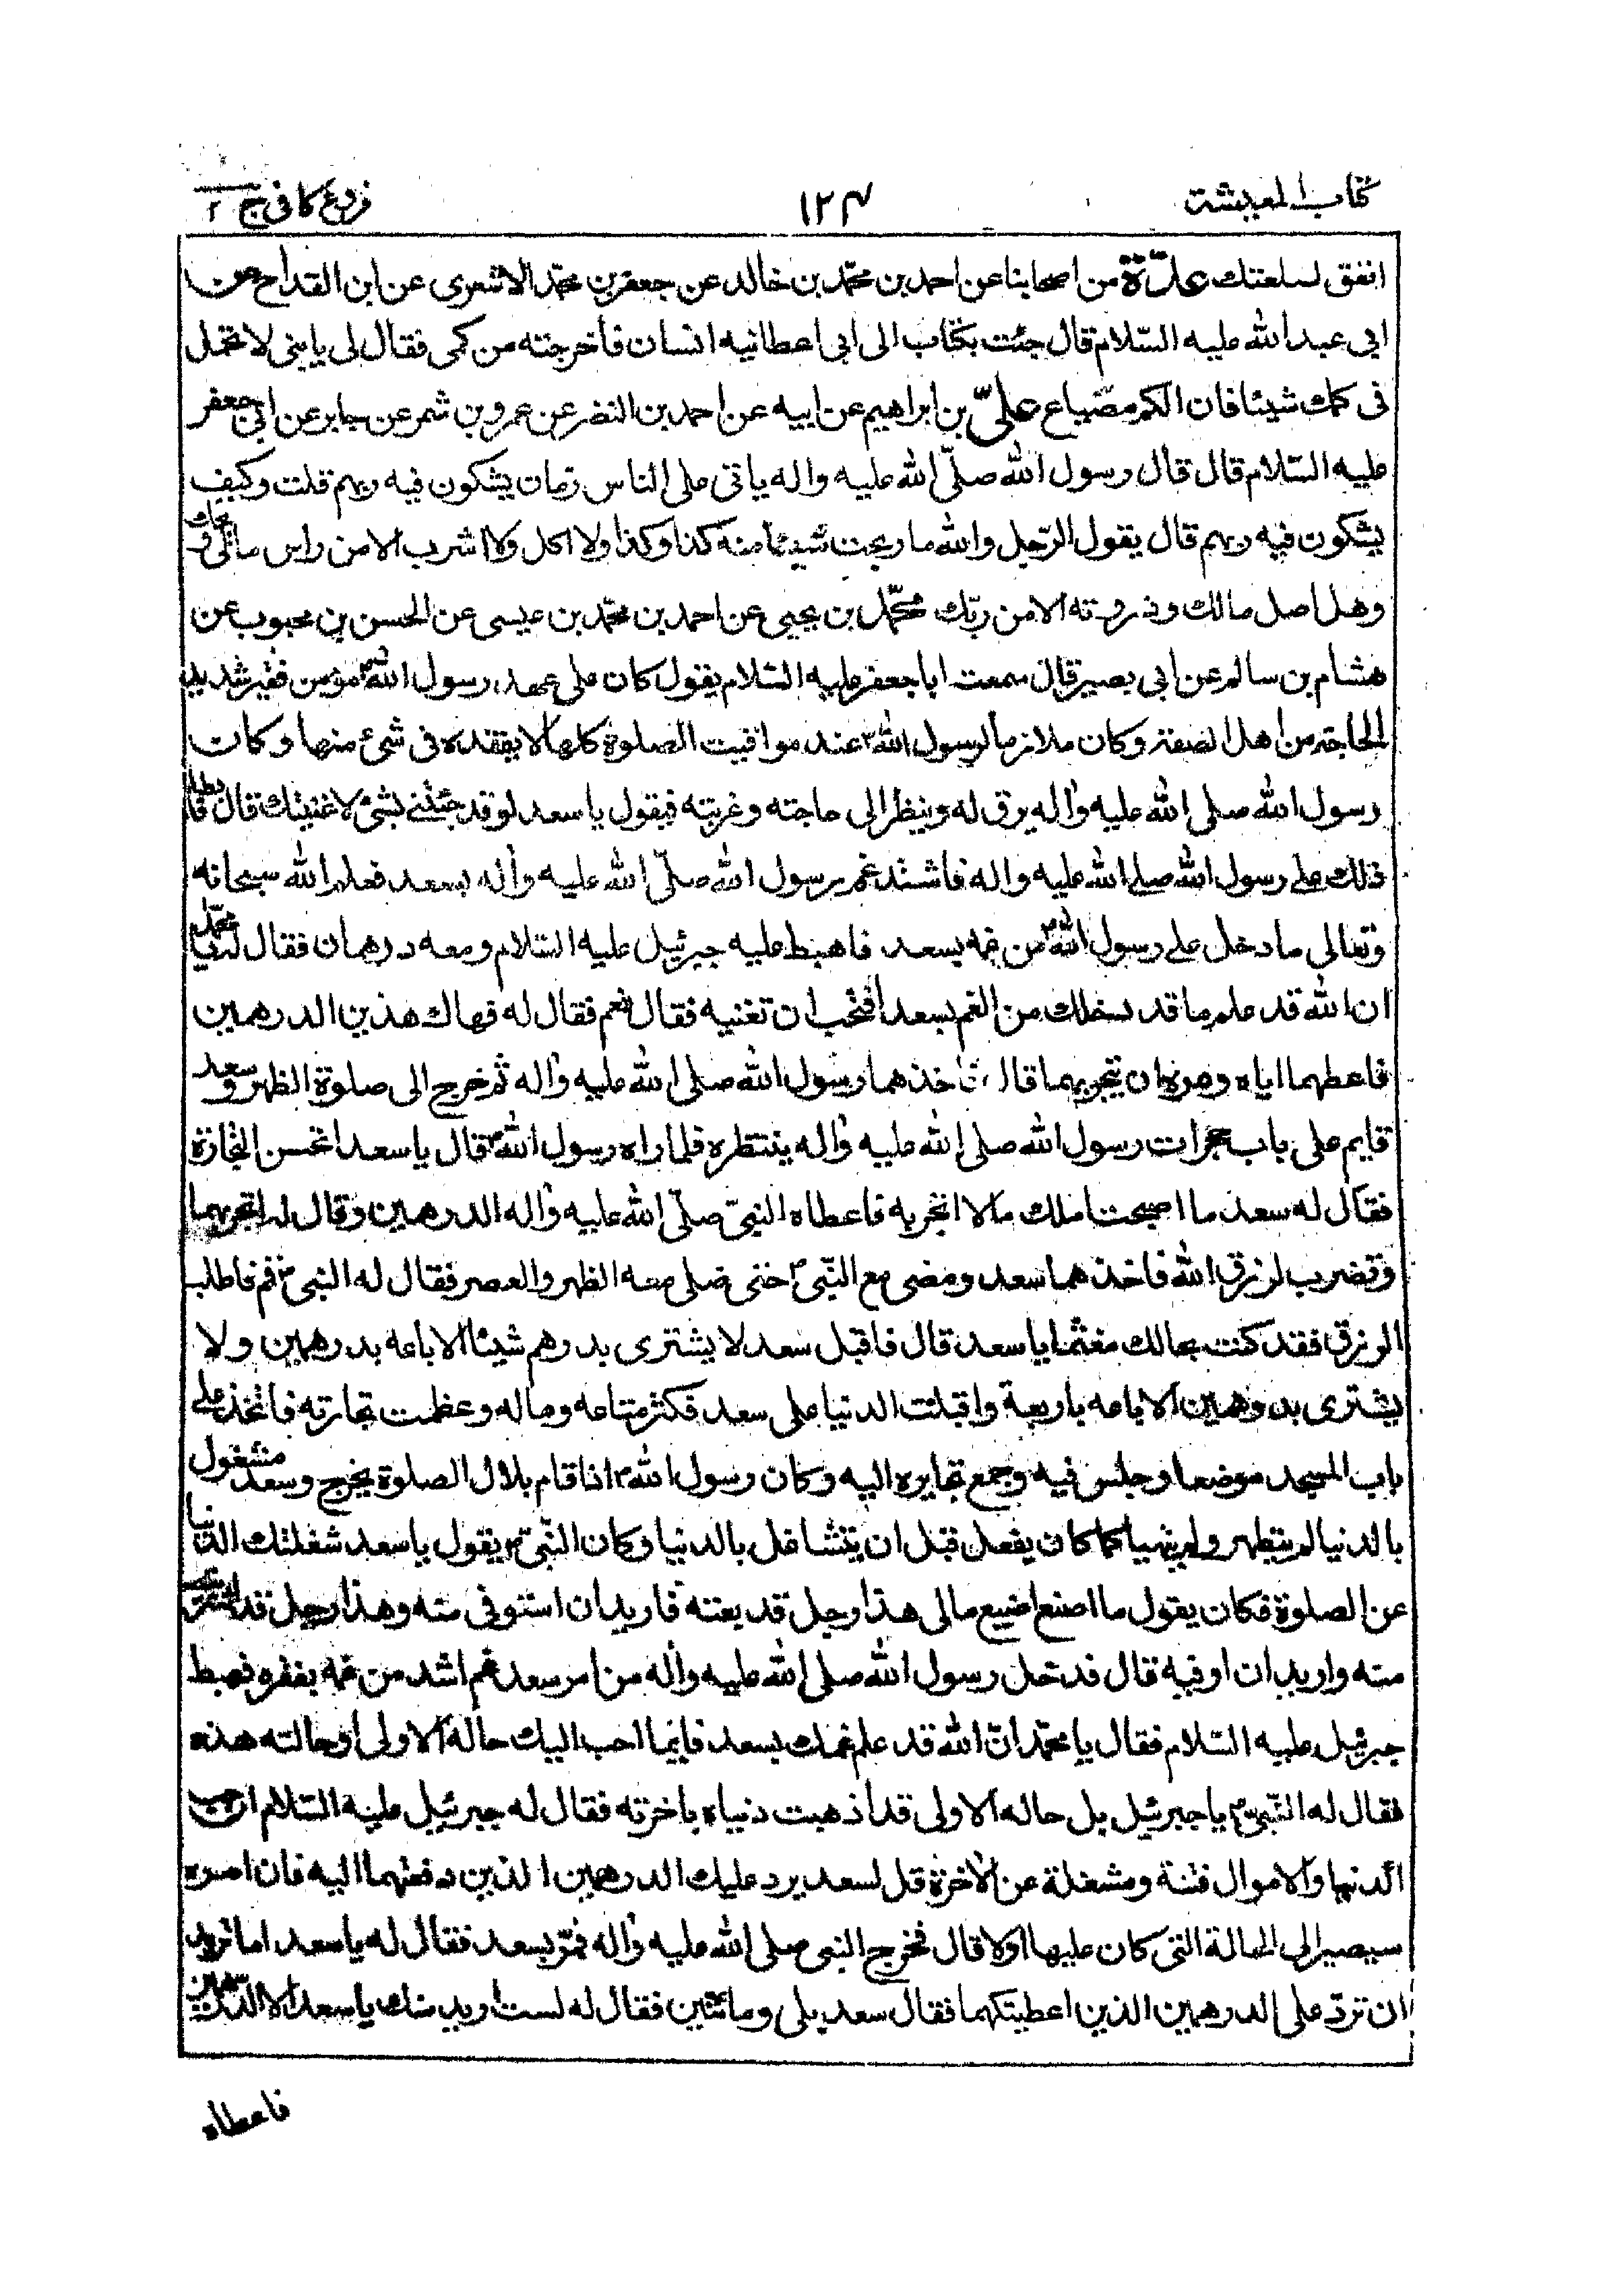 كتاب المعيشة
١٢۴
فروع كافى ج ٢
انفق لسلعتك عدّة من اصحابنا عن احمد بن محمّد بن خالد عن جعفر بن محمّد الاشعرى عن ابن القداح عن
ابى عبد الله عليه السّلام قال جئت بكتاب الى ابى اعطانيه انسان فاخرجته من كمى فقال لى يا بنى لا تحمل
فى كمك شيئا فان الكم مضياع علىّ بن ابراهيم عن ابيه عن احمد بن النضر عن عمرو بن شمر عن جابر عن ابى جعفر
عليه السّلام قال قال رسول الله صلّى الله عليه واله ياتى على الناس زمان يشكون فيه ربهم قلت وكيف
يشكون فيه ربهم قال يقول الرّجل والله ما ربحت شيئا منذ كذا وكذا ولا اكل ولا اشرب الا من راس مالى ويحك
وهل اصل مالك وذروته الا من ربّك محمّد بن يحيى عن احمد بن محمّد بن عيسى عن الحسن بن محبوب عن
هشام بن سالم عن ابى بصير قال سمعت ابا جعفر عليه السّلام يقول كان على عهد رسول الله ص مؤمن فقير شديد
الحاجة من اهل الصفة وكان ملازما لرسول الله ص عند مواقيت الصلوة كلها لا يفقده فى شئ منها وكان
رسول الله صلى الله عليه واله يرق له وينظر الى حاجته وغربته فيقول يا سعد لو قد جئنى بشئ لاغنيتك قال فابطا
ذلك على رسول الله صلى الله عليه واله فاشتد غم رسول الله صلّى الله عليه واله بسعد فعلم الله سبحانه
وتعالى ما دخل على رسول الله ص من غمه بسعد فاهبط عليه جبرئيل عليه السّلام ومعه درهمان فقال له يا محمّد
ان الله قد علم ما قد دخلك من الغم بسعد افتحب ان تغنيه فقال نعم فقال له فهاك هذين الدرهمين
فاعطهما اياه ومره ان يتجر بهما قال فاخذهما رسول الله صلى الله عليه واله ثم خرج الى صلوة الظهر وسعد
قايم على باب حجرات رسول الله صلى الله عليه واله ينتظره فلما راه رسول الله ص قال يا سعد اتحسن التجارة
فقال له سعد ما اصبحت املك مالا اتجر به فاعطاه النبىّ صلّى الله عليه واله الدرهمين وقال له اتجر بهما
وتضرب لرزق الله فاخذهما سعد ومضى مع النّبى ص حتى صلى معه الظهر والعصر فقال له النبى ص قم فاطلب
الرزق فقد كنت بحالك مغتما يا سعد قال فاقبل سعد لا يشترى بدرهم شيئا الا باعه بدرهمين ولا
يشترى بدرهمين الا باعه باربعة واقبلت الدنيا على سعد فكثر متاعه وماله وعظمت تجارته فاتخذ على
باب المسجد موضعا وجلس فيه وجمع تجايره اليه وكان رسول الله ص اذا قام بلال الصلوة يخرج وسعد مشغول
بالدنيا لم يتطهر ولم يتهيا كما كان يفعل قبل ان يتشاغل بالدنيا وكان النّبى ص يقول يا سعد شغلتك الدنيا
عن الصلوة فكان يقول ما اصنع اضيع مالى هذا رجل قد بعته فاريد ان استوفى منه وهذا رجل قد اشتريت
منه واريد ان اوفيه قال فدخل رسول الله صلى الله عليه واله من امر سعد غم اشد من غمه بفقره فهبط
جبرئيل عليه السّلام فقال يا محمّد انّ الله قد علم غمك بسعد فايما احب اليك حاله الاولى او حالته هذه
فقال له النّبىّ ص يا جبرئيل بل حاله الاولى قد اذهبت دنياه باخرته فقال له جبرئيل عليه السّلام ان حب
الدنيا والاموال فتنة ومشغلة عن الاخرة قل لسعد يرد عليك الدرهمين الذين دفعتهما اليه فان امره
سيصير الى الحالة التى كان عليها اولا قال فخرج النبى صلى الله عليه واله فمرّ بسعد فقال له يا سعد اما تريد
ان تردّ على الدرهمين الذين اعطيتكهما فقال سعد بلى ومائتين فقال له لست اريد منك يا سعد الا الدرهمين
فاعطاه